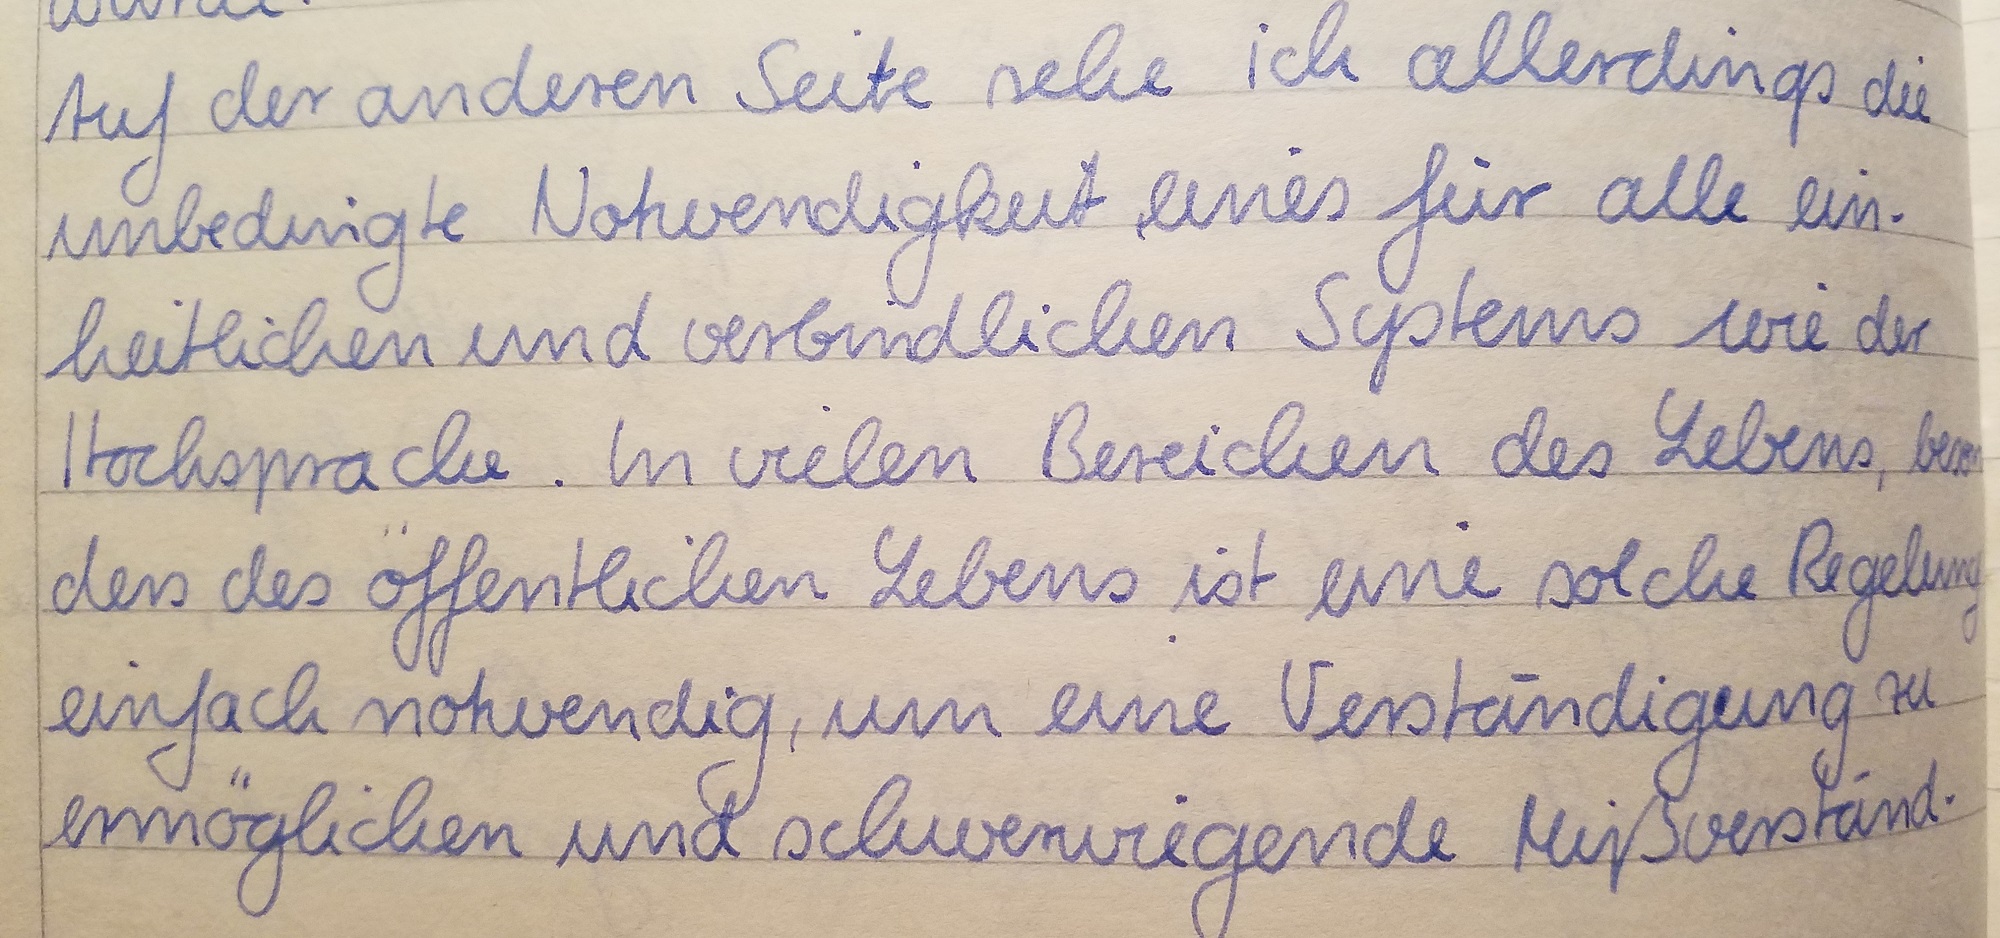 Auf der anderen Seite sehe ich allerdings die
unbedingte Notwendigkeit eines für alle ein-
heitlichen und verbindlichen Systems wie der
Hochsprache. In vielen Bereichen des Lebens, beson
ders des öffentlichen Lebens ist eine solche Regelung
einfach notwendig, um eine Verständigung zu
ermöglichen und schwerwiegende Mißverständ-